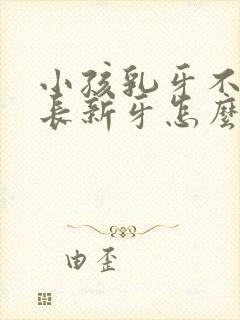 小孩乳牙不
长新牙怎麼
由歪